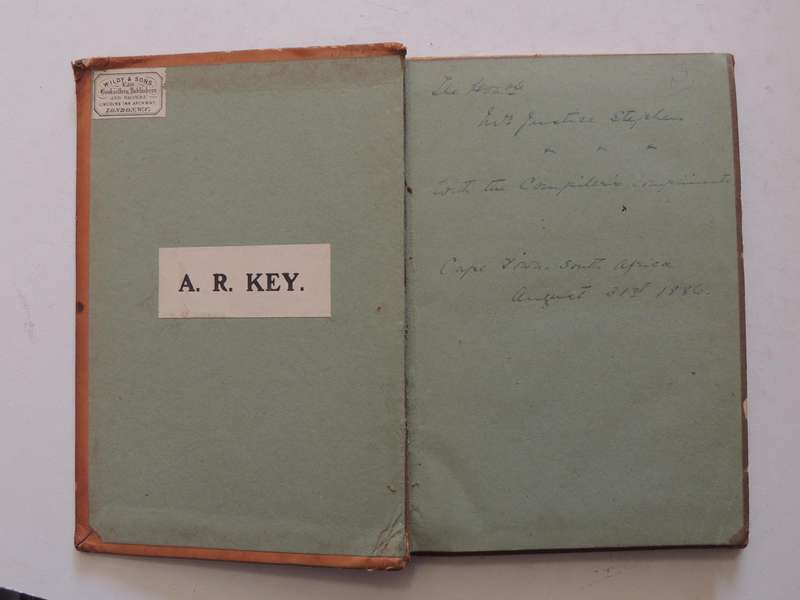 WILDY & SONS
Law
Booksellers, Publishers
AND BINDERS
LINCOLNS INN ARCHWAY
LONDON.W.C.
A. R. KEY.
The Honble
Mr Justice Stephen
" " "
with the Compiler's compliments
Cape Town. South Africa
August 31st 1886.